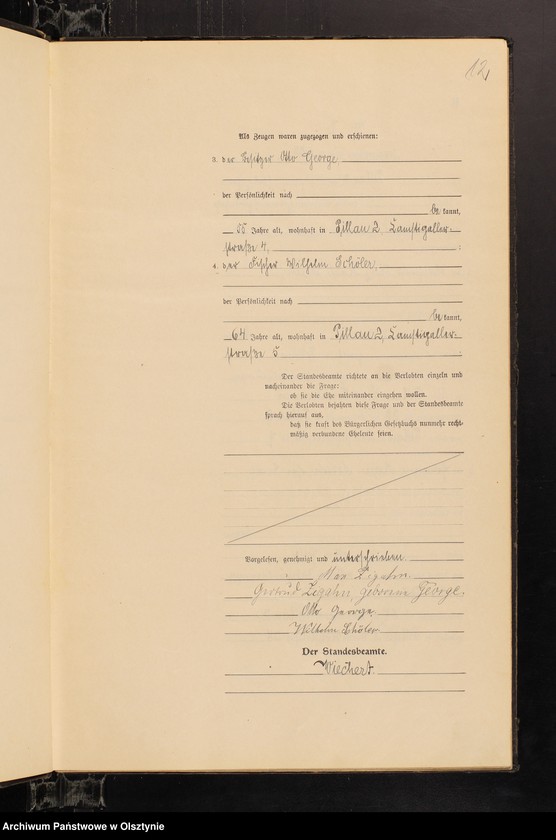 12
Als Zeugen waren zugezogen und erschienen:
3. der Besitzer Otto George
der Persönlichkeit nach
be kannt,
55 Jahre alt, wohnhaft in Pillau 2 Camstigaller-
straße 4. ;
4. der Fischer Wilhelm Schöler
der Persönlichkeit nach
be kannt,
64 Jahre alt, wohnhaft in Pillau 2, Camstigaller-
straße 5
Der Standesbeamte richtete an die Verlobten einzeln und
nacheinander die Frage:
ob sie die Ehe miteinander eingehen wollen.
Die Verlobten bejahten diese Frage und der Standesbeamte
sprach hierauf aus,
daß sie kraft des Bürgerlichen Gesetzbuchs nunmehr recht-
mäßig verbundene Eheleute seien.
Vorgelesen, genehmigt und unterschrieben
Max Zigahn.
Gertrud Zigahn, geborene George.
Otto George.
Wilhelm Schöler
Der Standesbeamte.
Wiechert.
Archiwum Państwowe w Olsztynie